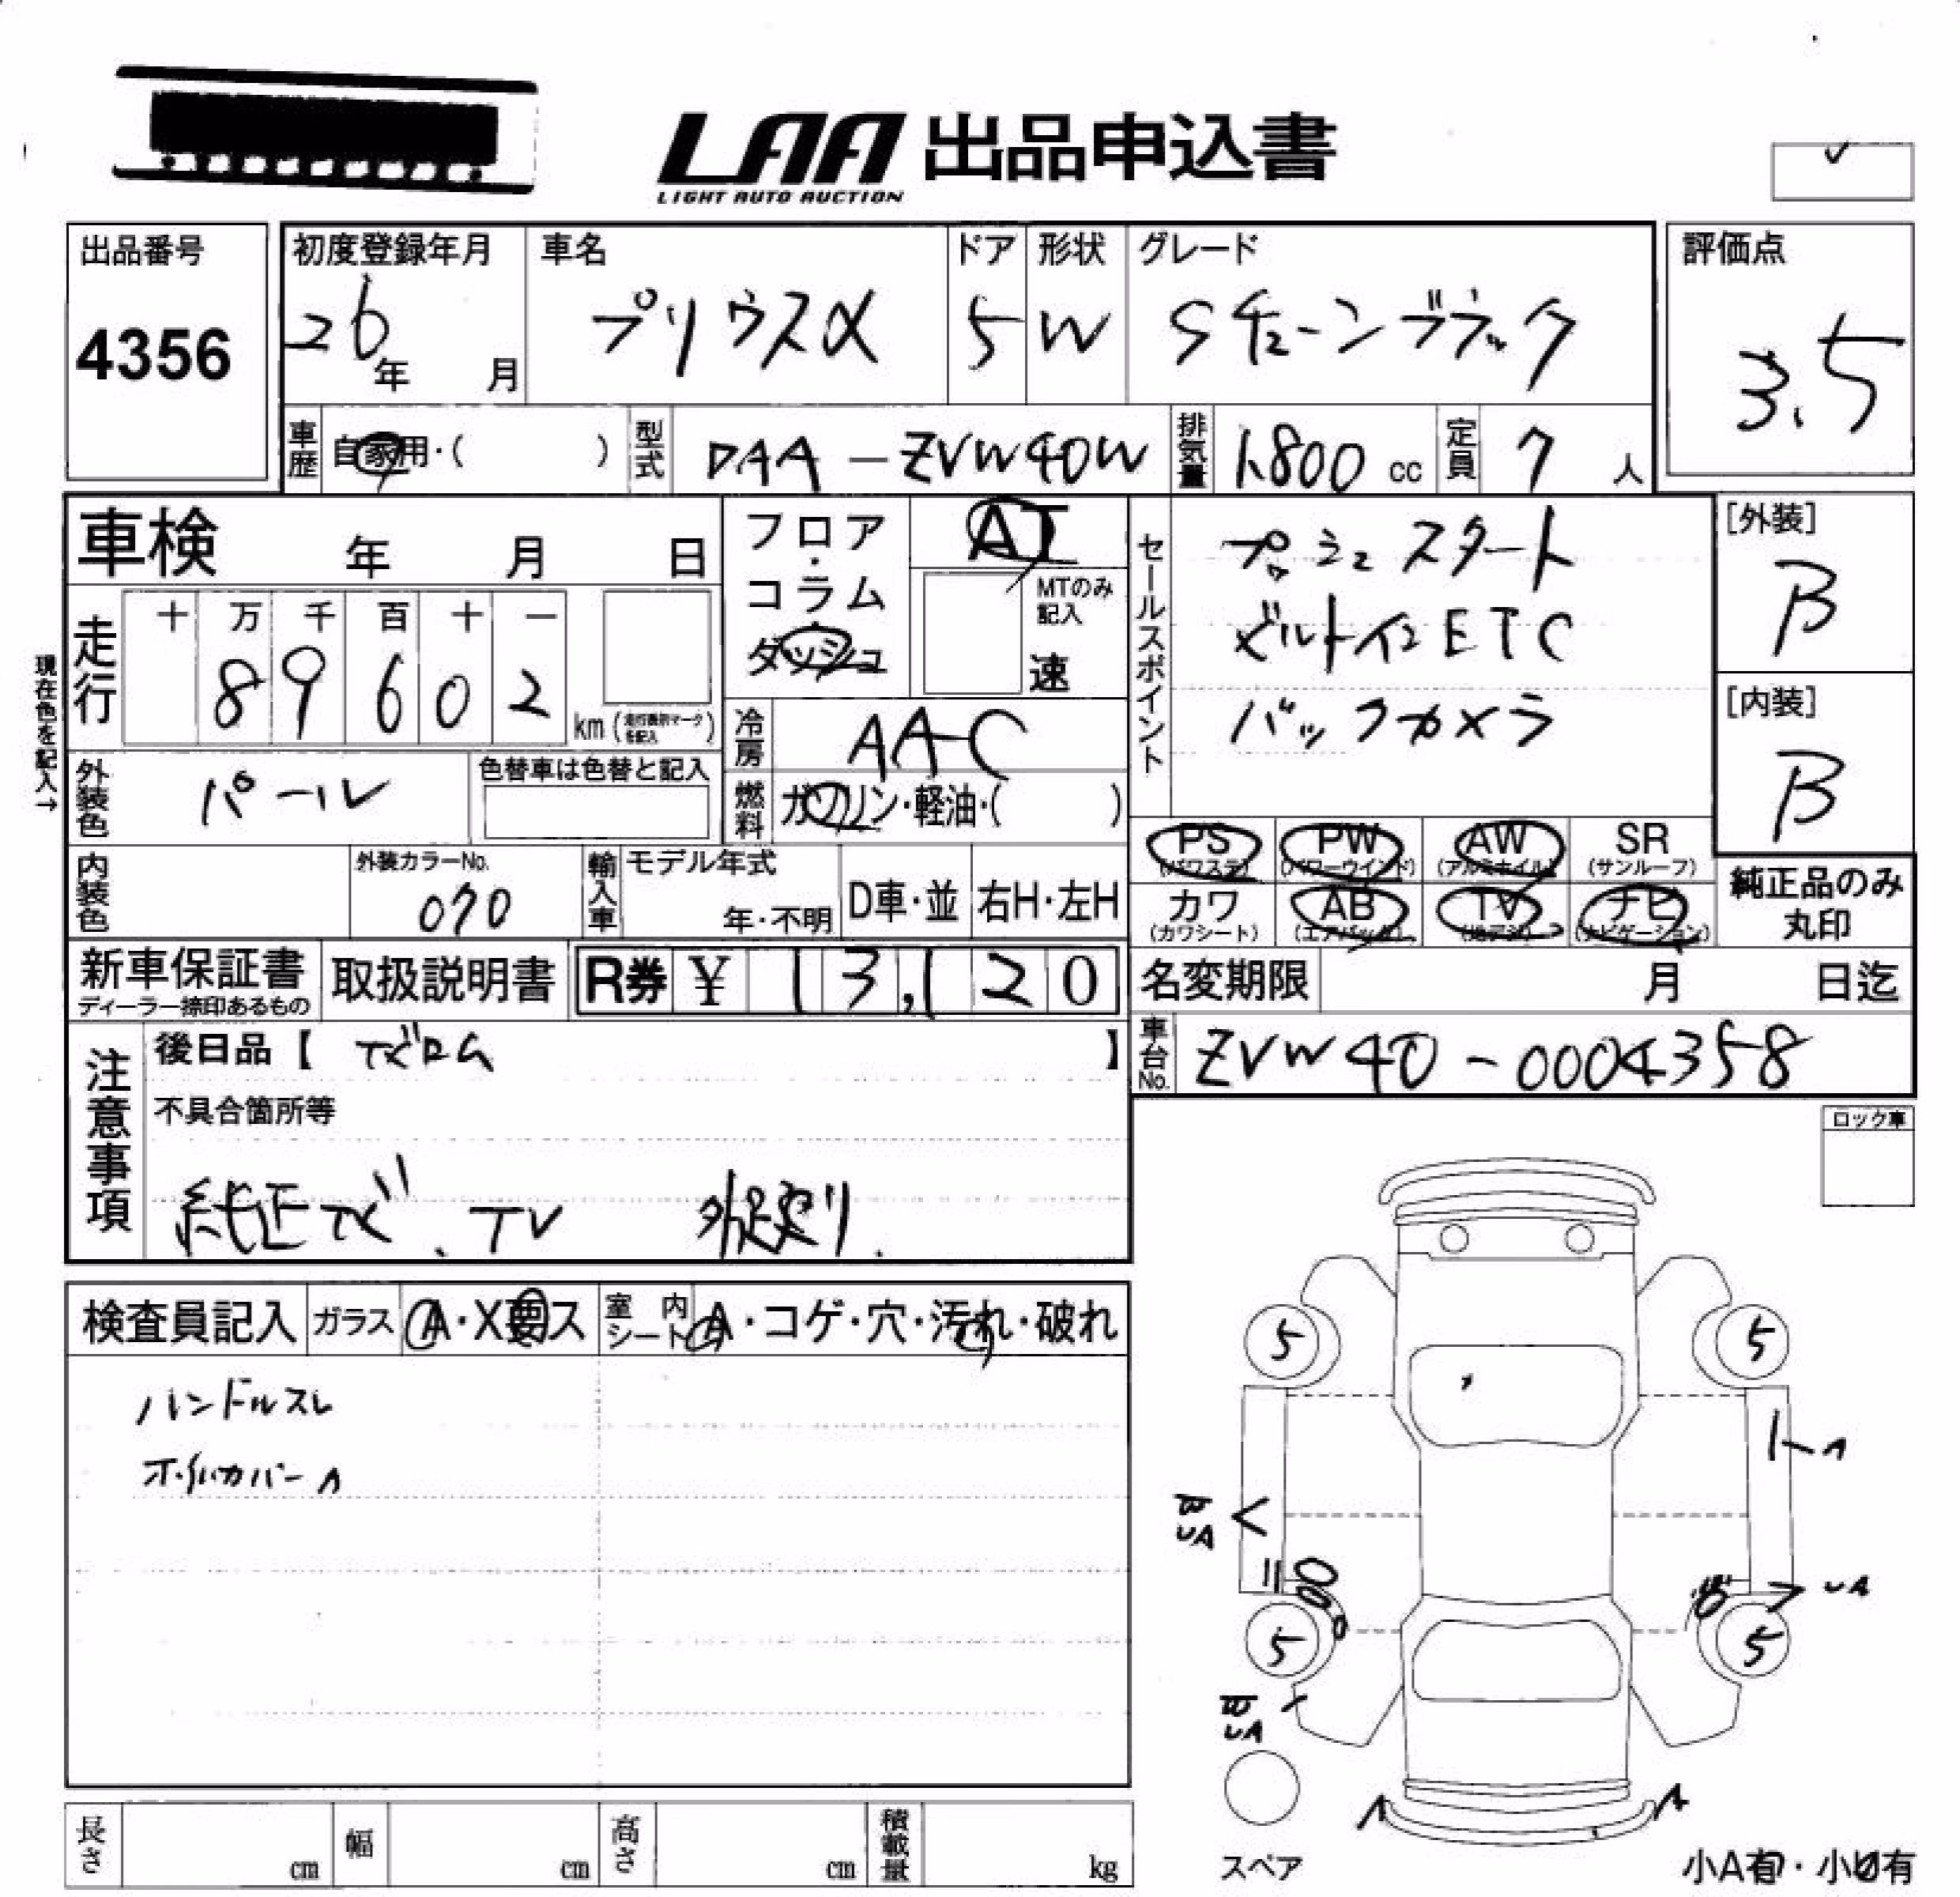 LAA 出品申込書
LIGHT AUTO AUCTION
出品番号
4356
初度登録年月
26年 月
車名
プリウスα
ドア
5
形状
W
グレード
Sチューンブラック
評価点
3.5
車歴
自家用・( )
型式
DAA-ZVW40W
排気量
1,800 cc
定員
7 人
車検 年 月 日
フロア・コラム・ダッシュ
AT
MTのみ記入
速
セールスポイント
プッシュスタート
ビルトインETC
バックカメラ
[外装]
B
[内装]
B
現在色を記入→
走行
十 万 千 百 十 一
8 9 6 0 2
km (走行機関マークを記入)
冷房
AAC
外装色
パール
色替車は色替と記入
燃料
ガソリン・軽油・( )
PS (パワステ)
PW (パワーウインド)
AW (アルミホイル)
SR (サンルーフ)
カワ (カワシート)
AB (エアバック)
TV (地デジ)
ナビ (ナビゲーション)
純正品のみ丸印
内装色
外装カラーNo.
070
輸入車
モデル年式
年・不明
D車・並
右H・左H
新車保証書
ディーラー捺印あるもの
取扱説明書
R券 ¥ 13,120
名変期限 月 日迄
車台No.
ZVW40-0004358
注意事項
後日品【 】
不具合箇所等
純正ナビ、TV
ロック車
検査員記入
ガラス
A・X要ス
室内シート
A・コゲ・穴・汚れ・破れ
ハンドルスレ
ホイルカバーA
5
5
A
UA
UA
5
5
UA
A
A
スペア
小A有・小U有
長さ cm
幅 cm
高さ cm
積載量 kg